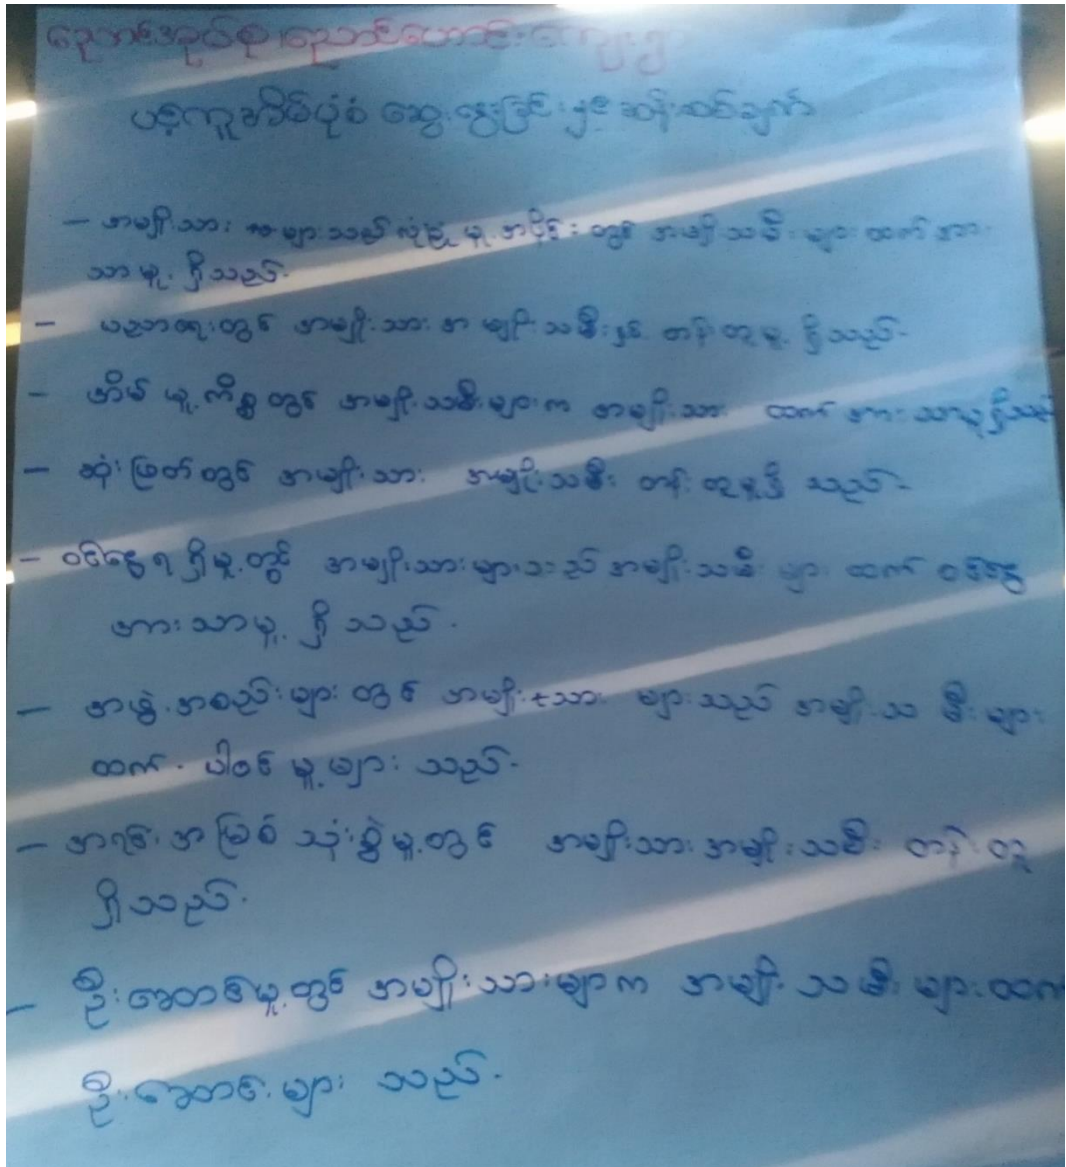 ညောင်အုပ်စု၊ ညောင်ဟောင်းကျေးရွာ
ပင့်ကူအိမ်ပုံစံ ဆွေးနွေးခြင်း၊ ဆန်းစစ်ချက်
- အမျိုးသား များသည် လုံခြုံမှု့အပိုင်းတွင် အမျိုးသမီးများ ထက် အား
သာမှု့ ရှိသည်.
- ပညာရေးတွင် အမျိုးသား အမျိုးသမီးနှင့် တန်းတူမှု့ ရှိသည်.
- အိမ် မှု့ကိစ္စတွင် အမျိုးသမီးများက အမျိုးသား ထက် အားသာမှု့ရှိသည်
- ဆုံးဖြတ်တွင် အမျိုးသား အမျိုးသမီး တန်းတူမှု့ရှိ သည်.
- ဝင်ငွေရရှိမှု့တွင် အမျိုးသားများသည် အမျိုးသမီးများ ထက် ဝင်ငွေ
အားသာမှု့ ရှိ သည်.
- အဖွဲ့အစည်းများ တွင် အမျိုးသား များသည် အမျိုးသမီးများ
ထက် ပါဝင် မှု့များ သည်.
- အရင်းအမြစ် သုံးစွဲမှု့တွင် အမျိုးသားအမျိုးသမီး တန်းတူ
ရှိသည်.
- ဦးဆောင်မှု့တွင် အမျိုးသားများက အမျိုးသမီးများထက်
ဦးဆောင်များ သည်.